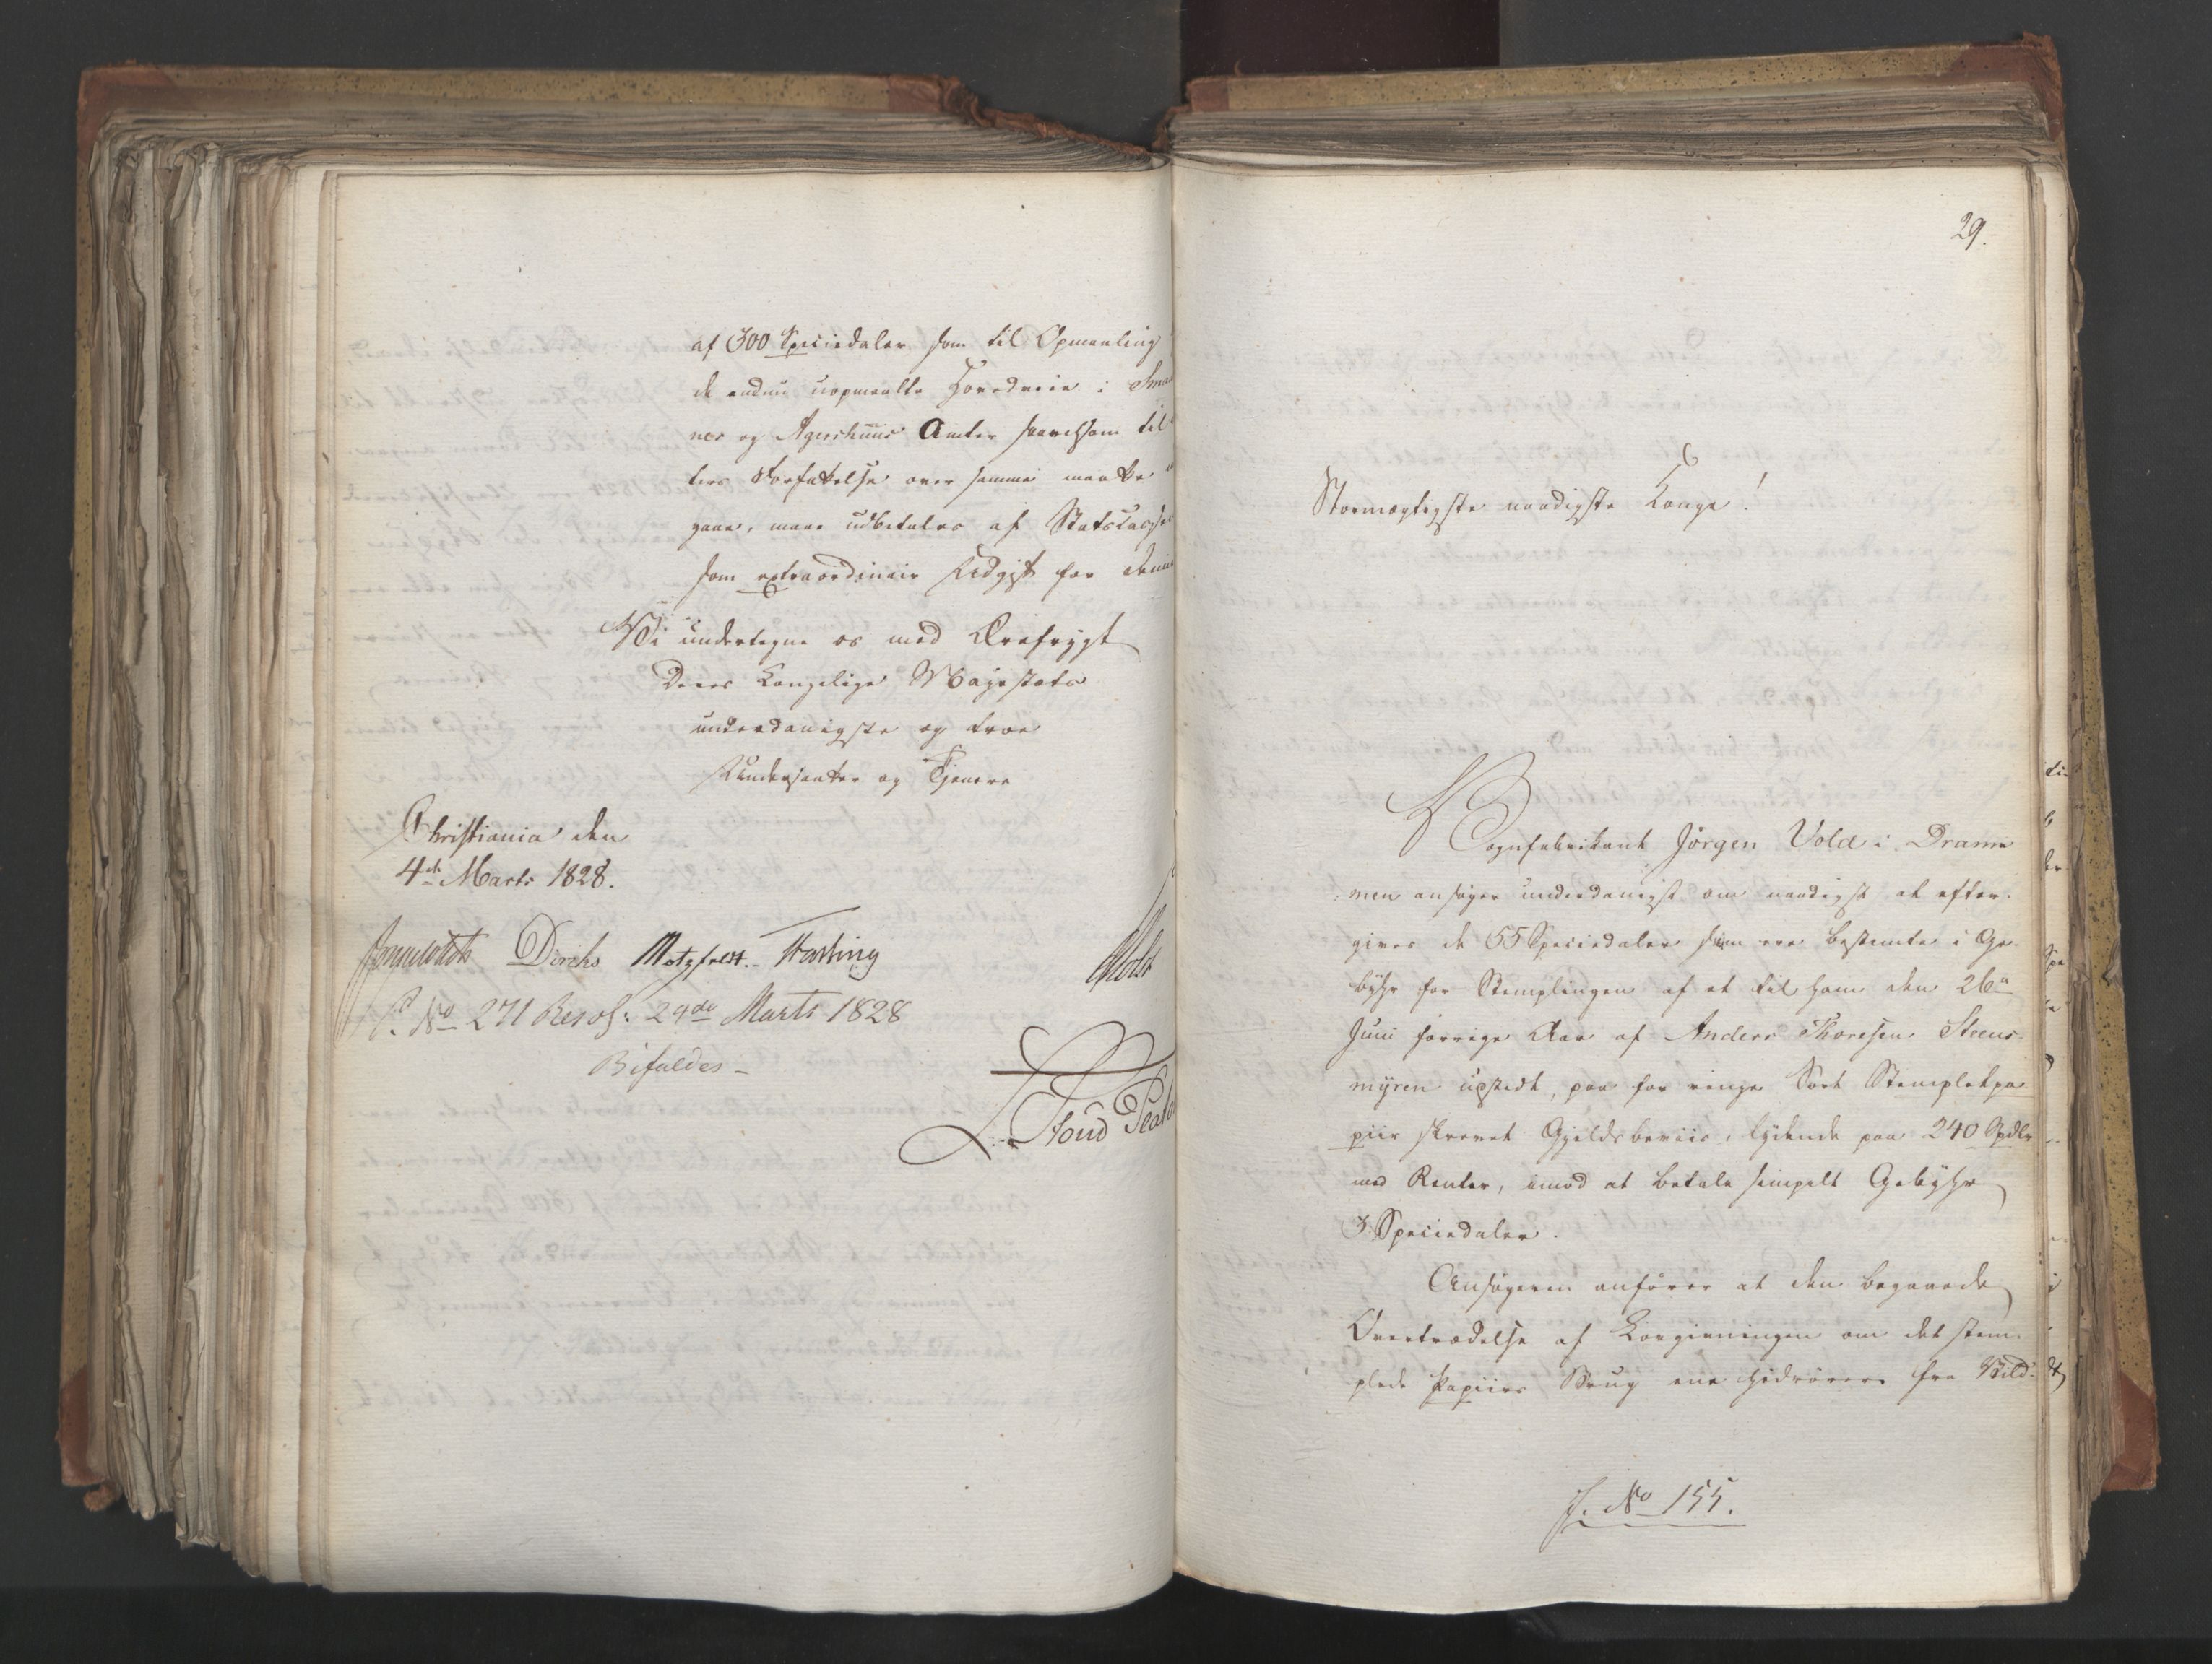 af 300 Speciedaler som til Opmaaling
de endnu uopmaalte Hovedveie i Sma
nes og Agershuus Amter saavelsom til
ters Forfattelse over samme maatte
gaae, maae udbetales af Statscassen
som extraordinair Udgift for denne
Vi undertegne os med Ærefrygt
Deres Kongelige Majestæts
underdanigste og troe
Undersaatter og Tjenere
Christiania den
4de Marts 1828.
Diriks Motzfeldt. Fasting
No 271 Resol: 29de Marts 1828
Bifaldes
29.
Stormægtigste naadigste Konge!
Vognfabrikant Jörgen Vold i Dram
men ansøger underdanigst om naadigst at efter-
gives de 55 Speciedaler som ere bestemte i Ge-
byhr for Stemplingen af et til ham den 26de
Juni forrige Aar af Anders Thoresen Steens
myren udstedt, paa for ringe Sort Stempletpa
piir skrevet Gjeldsbeviis, lydende paa 240 Spdlr
med Renter, imod at betale simpelt Gebyhr
3 Speciedaler.
Ansøgeren anfører at den begaaede
Overtrædelse af Lovgivningen om det stem-
plede Papiirs Brug ene hidrører fra Vild-
J. No 155.